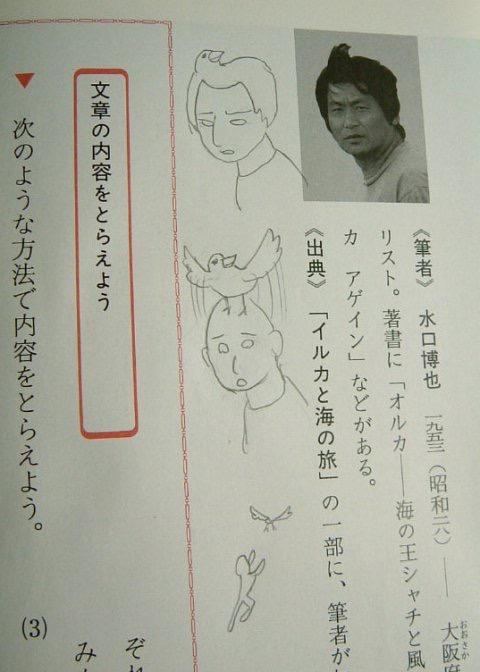 《筆者》 水口博也 一九五三(昭和二八)―― 大阪
おおさか
リスト。著書に「オルカ――海の王シャチと風
カ アゲイン」などがある。
《出典》「イルカと海の旅」の一部に、筆者が
文章の内容をとらえよう
▼ 次のような方法で内容をとらえよう。
(3)